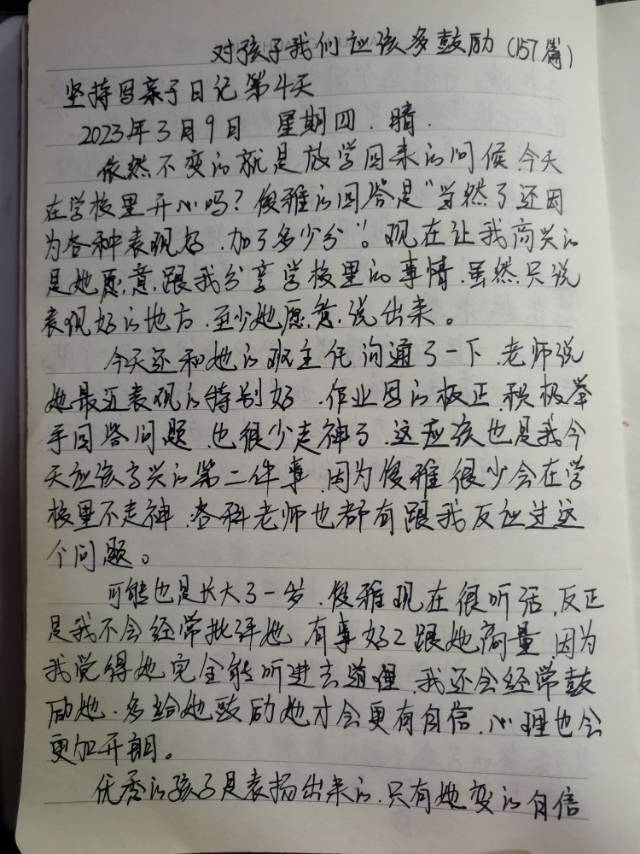 对孩子我们应该多鼓励（157篇）
坚持写亲子日记第4天
2023年3月9日 星期四.晴.
依然不变的就是放学回来的问候.今天
在学校里开心吗？俊雅的回答是“当然了还因
为各种表现好.加了多少分”。现在让我高兴的
是她愿意.跟我分享学校里的事情.虽然只说
表现好的地方.至少她愿意.说出来。
今天还和她的班主任沟通了一下.老师说
她最近表现的特别好.作业写的极正.积极举
手回答问题.也很少走神了.这应该也是我今
天应该高兴的第二件事.因为俊雅很少会在学
校里不走神.各科老师也都有跟我反应过这
个问题。
可能也是长大了一岁.俊雅现在很听话.反正
是我不会经常批评她.有事好好跟她商量.因为
我觉得她完全能听进去道理.我还会经常鼓
励她.多给她鼓励她才会更有自信.心理也会
更加开朗。
优秀的孩子是表扬出来的.只有她变的自信